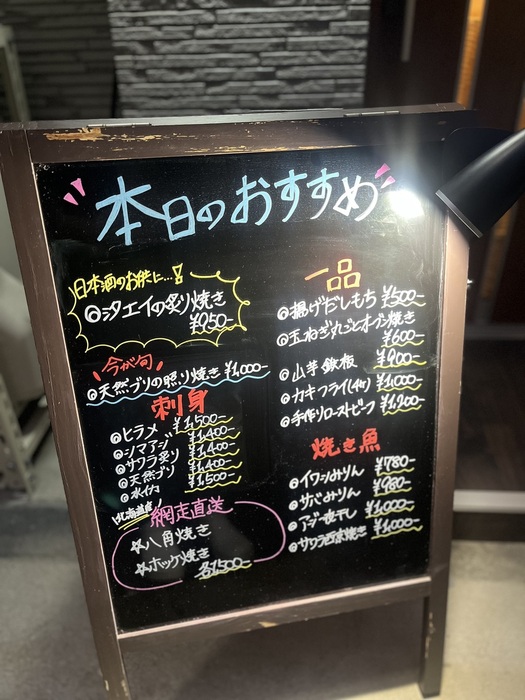 本日のおすすめ
日本酒のお供に…!
◎汐エイの炙り焼き
¥950-
今が旬
◎天然ブリの照り焼き ¥1,000-
刺身
◎ヒラメ ¥1,500-
◎シマアジ ¥1,400-
◎サワラ炙り ¥1,400-
◎天然ブリ ¥1,400-
◎水イカ ¥1,500-
北海道産
網走直送
☆八角焼き
☆ホッケ焼き
各1,500-
一品
◎揚げだしもち ¥500-
◎玉ねぎ丸ごとオーブン焼き
¥600-
◎山芋鉄板 ¥900-
◎カキフライ(4ヶ) ¥1,000-
◎手作りローストビーフ ¥1,200-
焼き魚
◎イワシみりん ¥780-
◎サバみりん ¥980-
◎アジ一夜干し ¥1,000-
◎サワラ西京焼き ¥1,000-